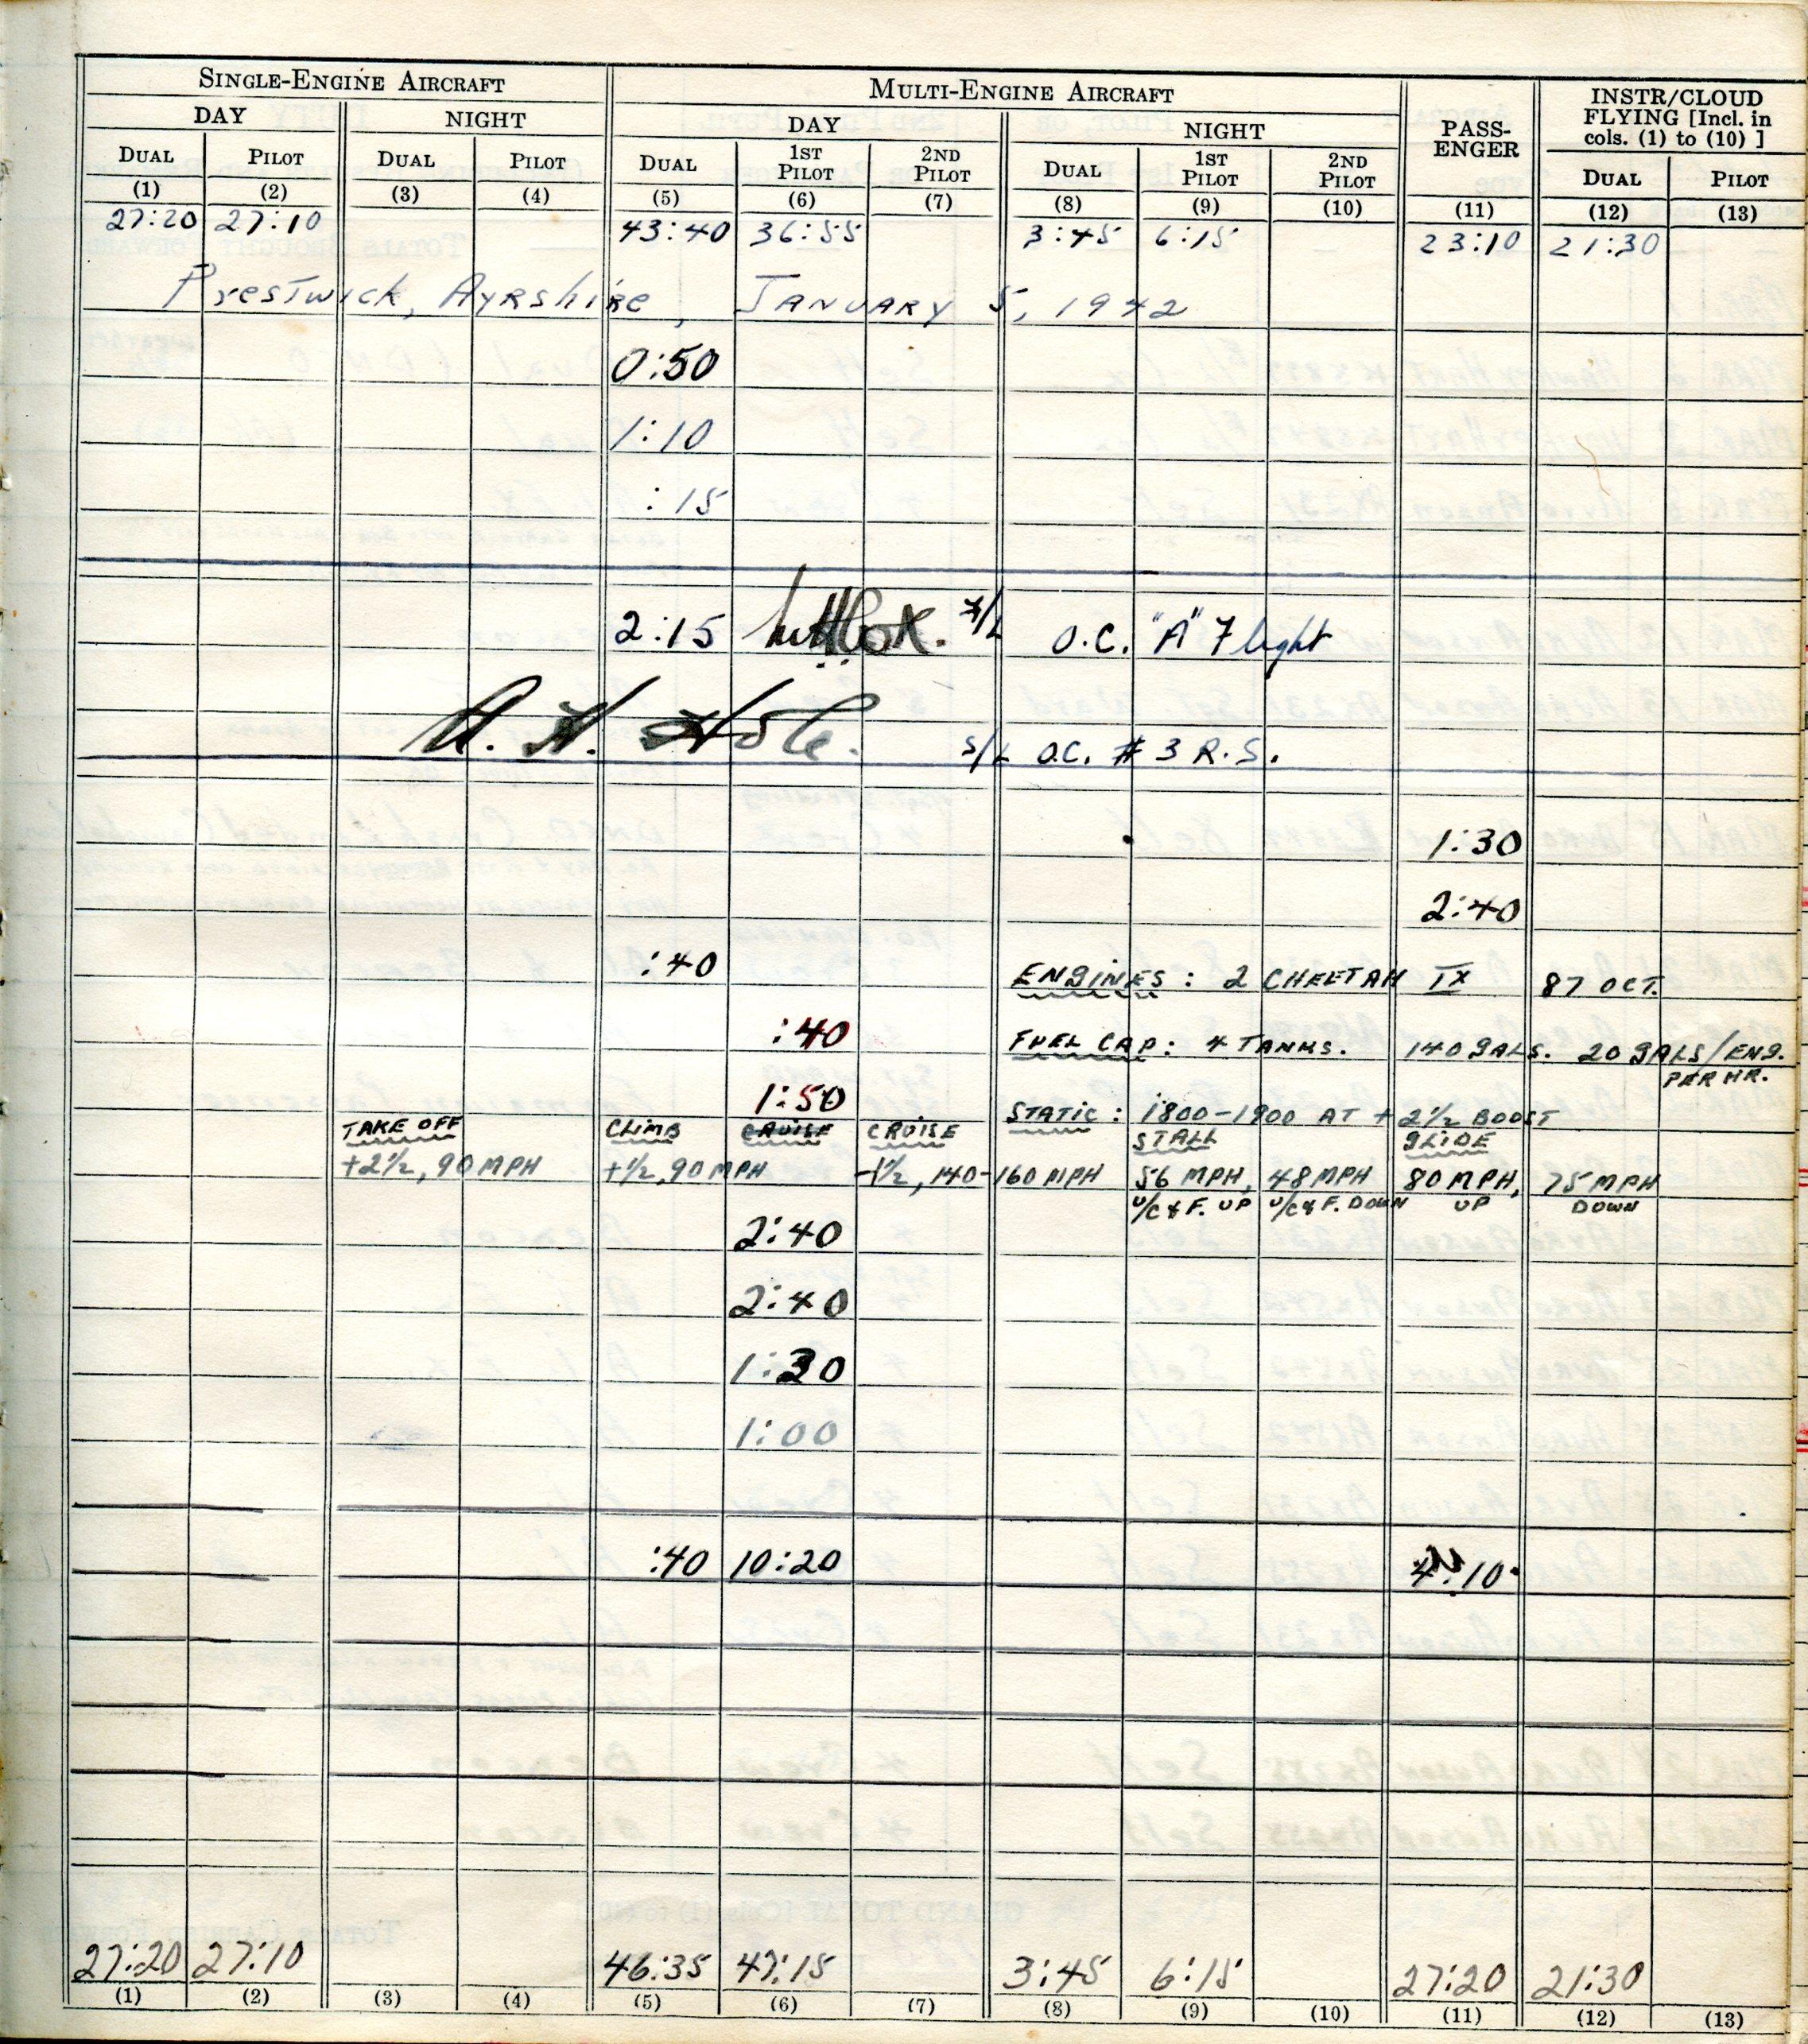 SINGLE-ENGINE AIRCRAFT MULTI-ENGINE AIRCRAFT PASS-ENGER INSTR/CLOUD FLYING [Incl. in cols. (1) to (10) ]
DAY NIGHT DAY NIGHT
DUAL PILOT DUAL PILOT DUAL 1ST PILOT 2ND PILOT DUAL 1ST PILOT 2ND PILOT DUAL PILOT
(1) (2) (3) (4) (5) (6) (7) (8) (9) (10) (11) (12) (13)
27:20 27:10 43:40 36:55 3:45 6:15 23:10 21:30
Prestwick, Ayrshire, January 5, 1942
0:50
1:10
:15
2:15 F/L O.C. "A" Flight
S/L O.C. # 3 R.S.
1:30
2:40
:40 ENGINES: 2 CHEETAH IX 87 OCT.
:40 FUEL CAP: 4 TANKS. 140 GALS. 20 GALS/ENG. PER HR.
1:50 STATIC: 1800-1900 AT +2½ BOOST
TAKE OFF CLIMB CRUISE CRUISE STALL GLIDE
+2½, 90 MPH +½, 90 MPH -1½, 140-160 MPH 56 MPH, 48 MPH 80 MPH, 75 MPH
U/C & F. UP U/C & F. DOWN UP DOWN
2:40
2:40
1:30
1:00
:40 10:20 4:10
27:20 27:10 46:35 47:15 3:45 6:15 27:20 21:30
(1) (2) (3) (4) (5) (6) (7) (8) (9) (10) (11) (12) (13)